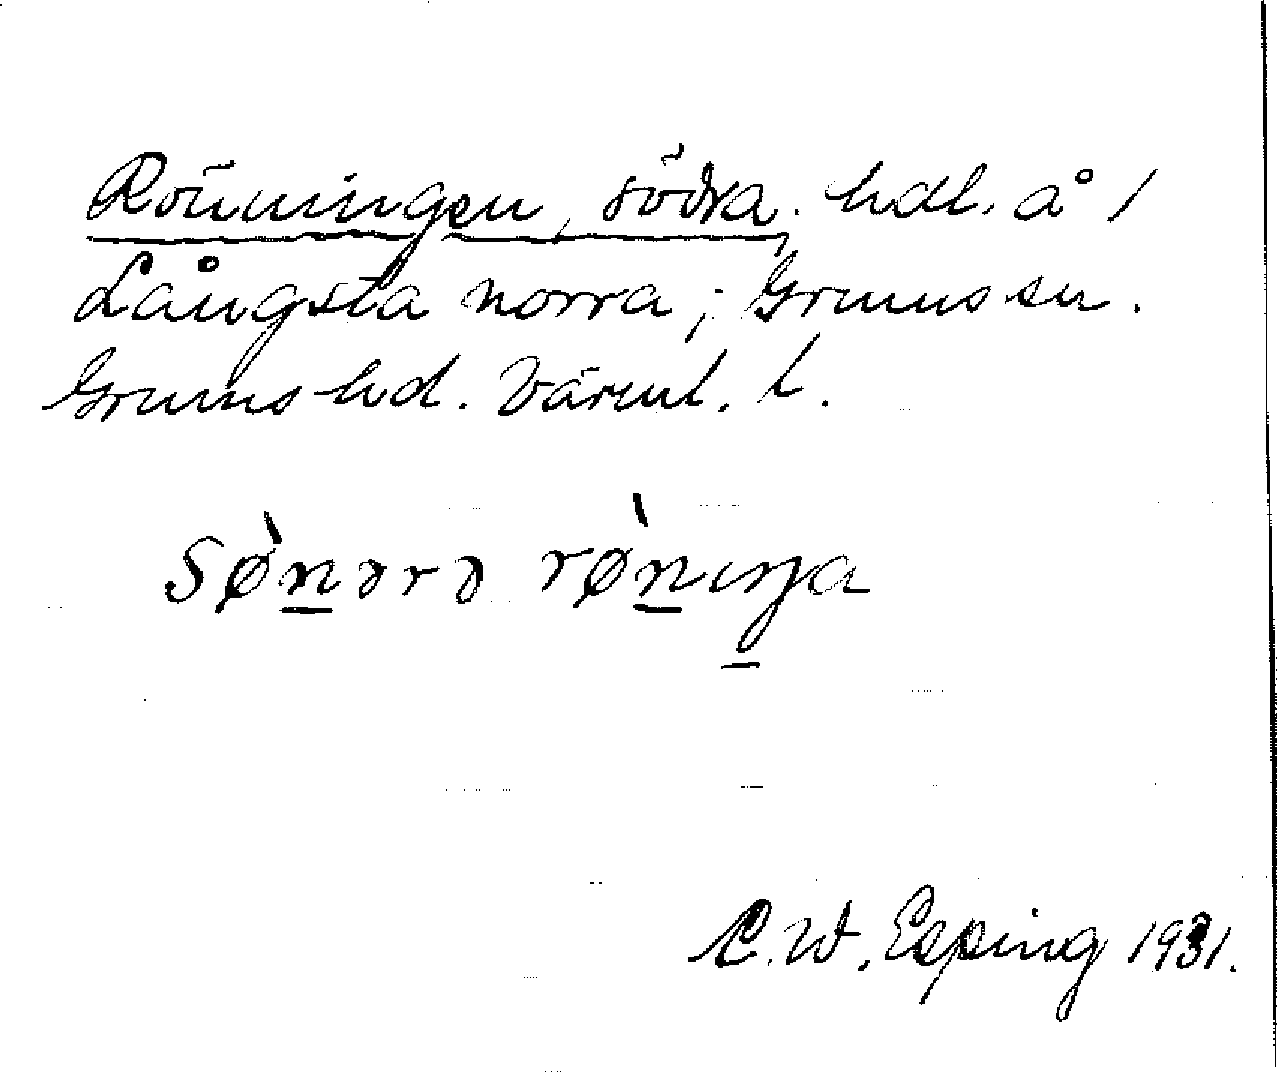 Rönningen, södra. hdl. å 1
Långsta norra; Grums sn.
Grums hd. Värml. l.
sø̀nərə rø̀nıŋa
C. W. Esping 1931.